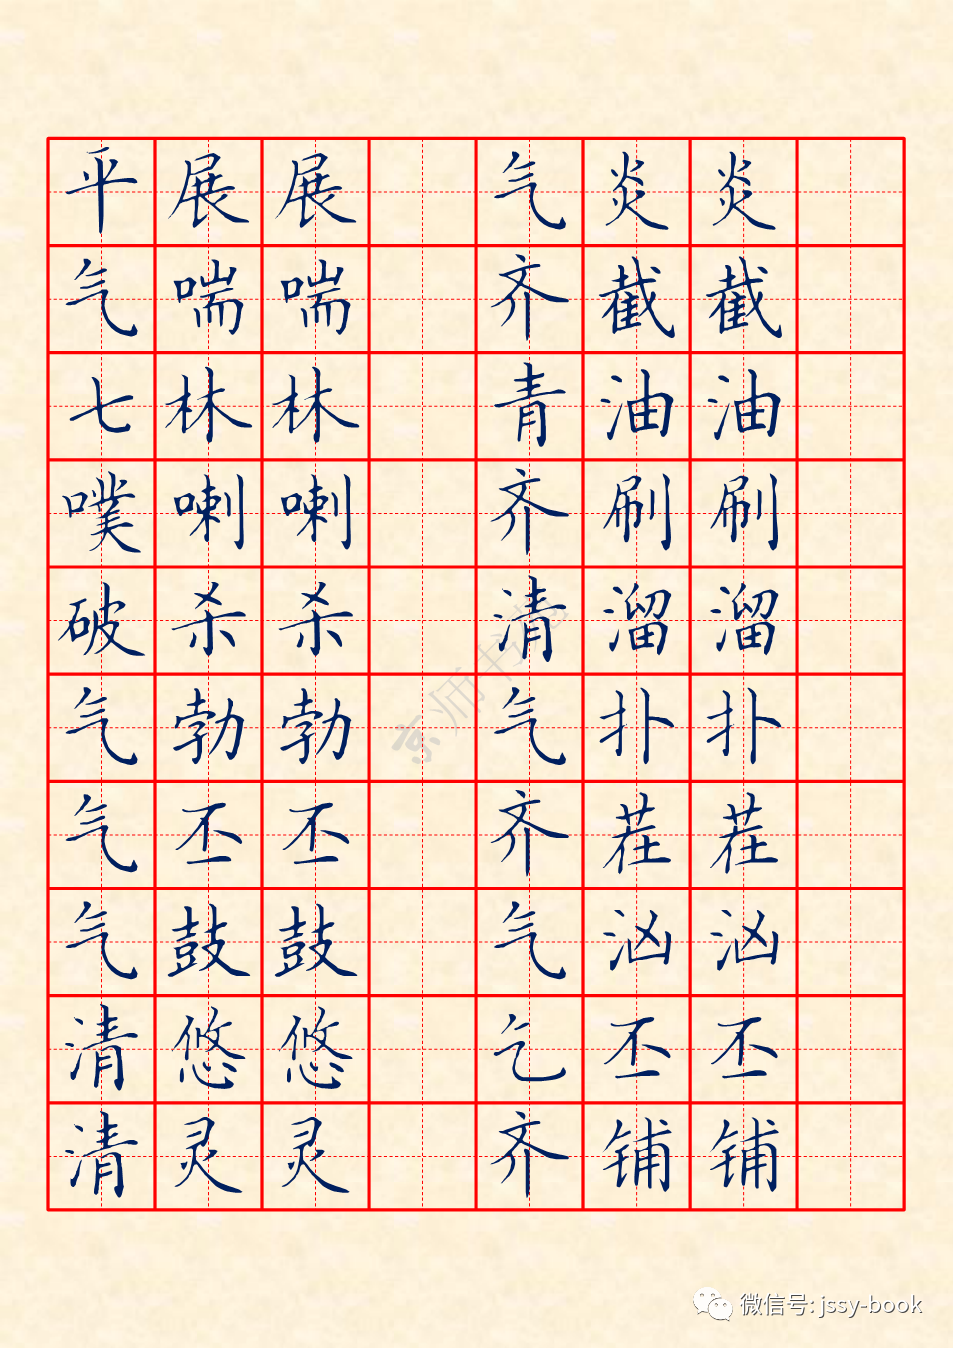 平展展 气炎炎
气喘喘 齐截截
七林林 青油油
噗喇喇 齐刷刷
破杀杀 清溜溜
气勃勃 气扑扑
气丕丕 齐茬茬
气鼓鼓 气汹汹
清悠悠 乞丕丕
清灵灵 齐铺铺
京师书苑
微信号: jssy-book